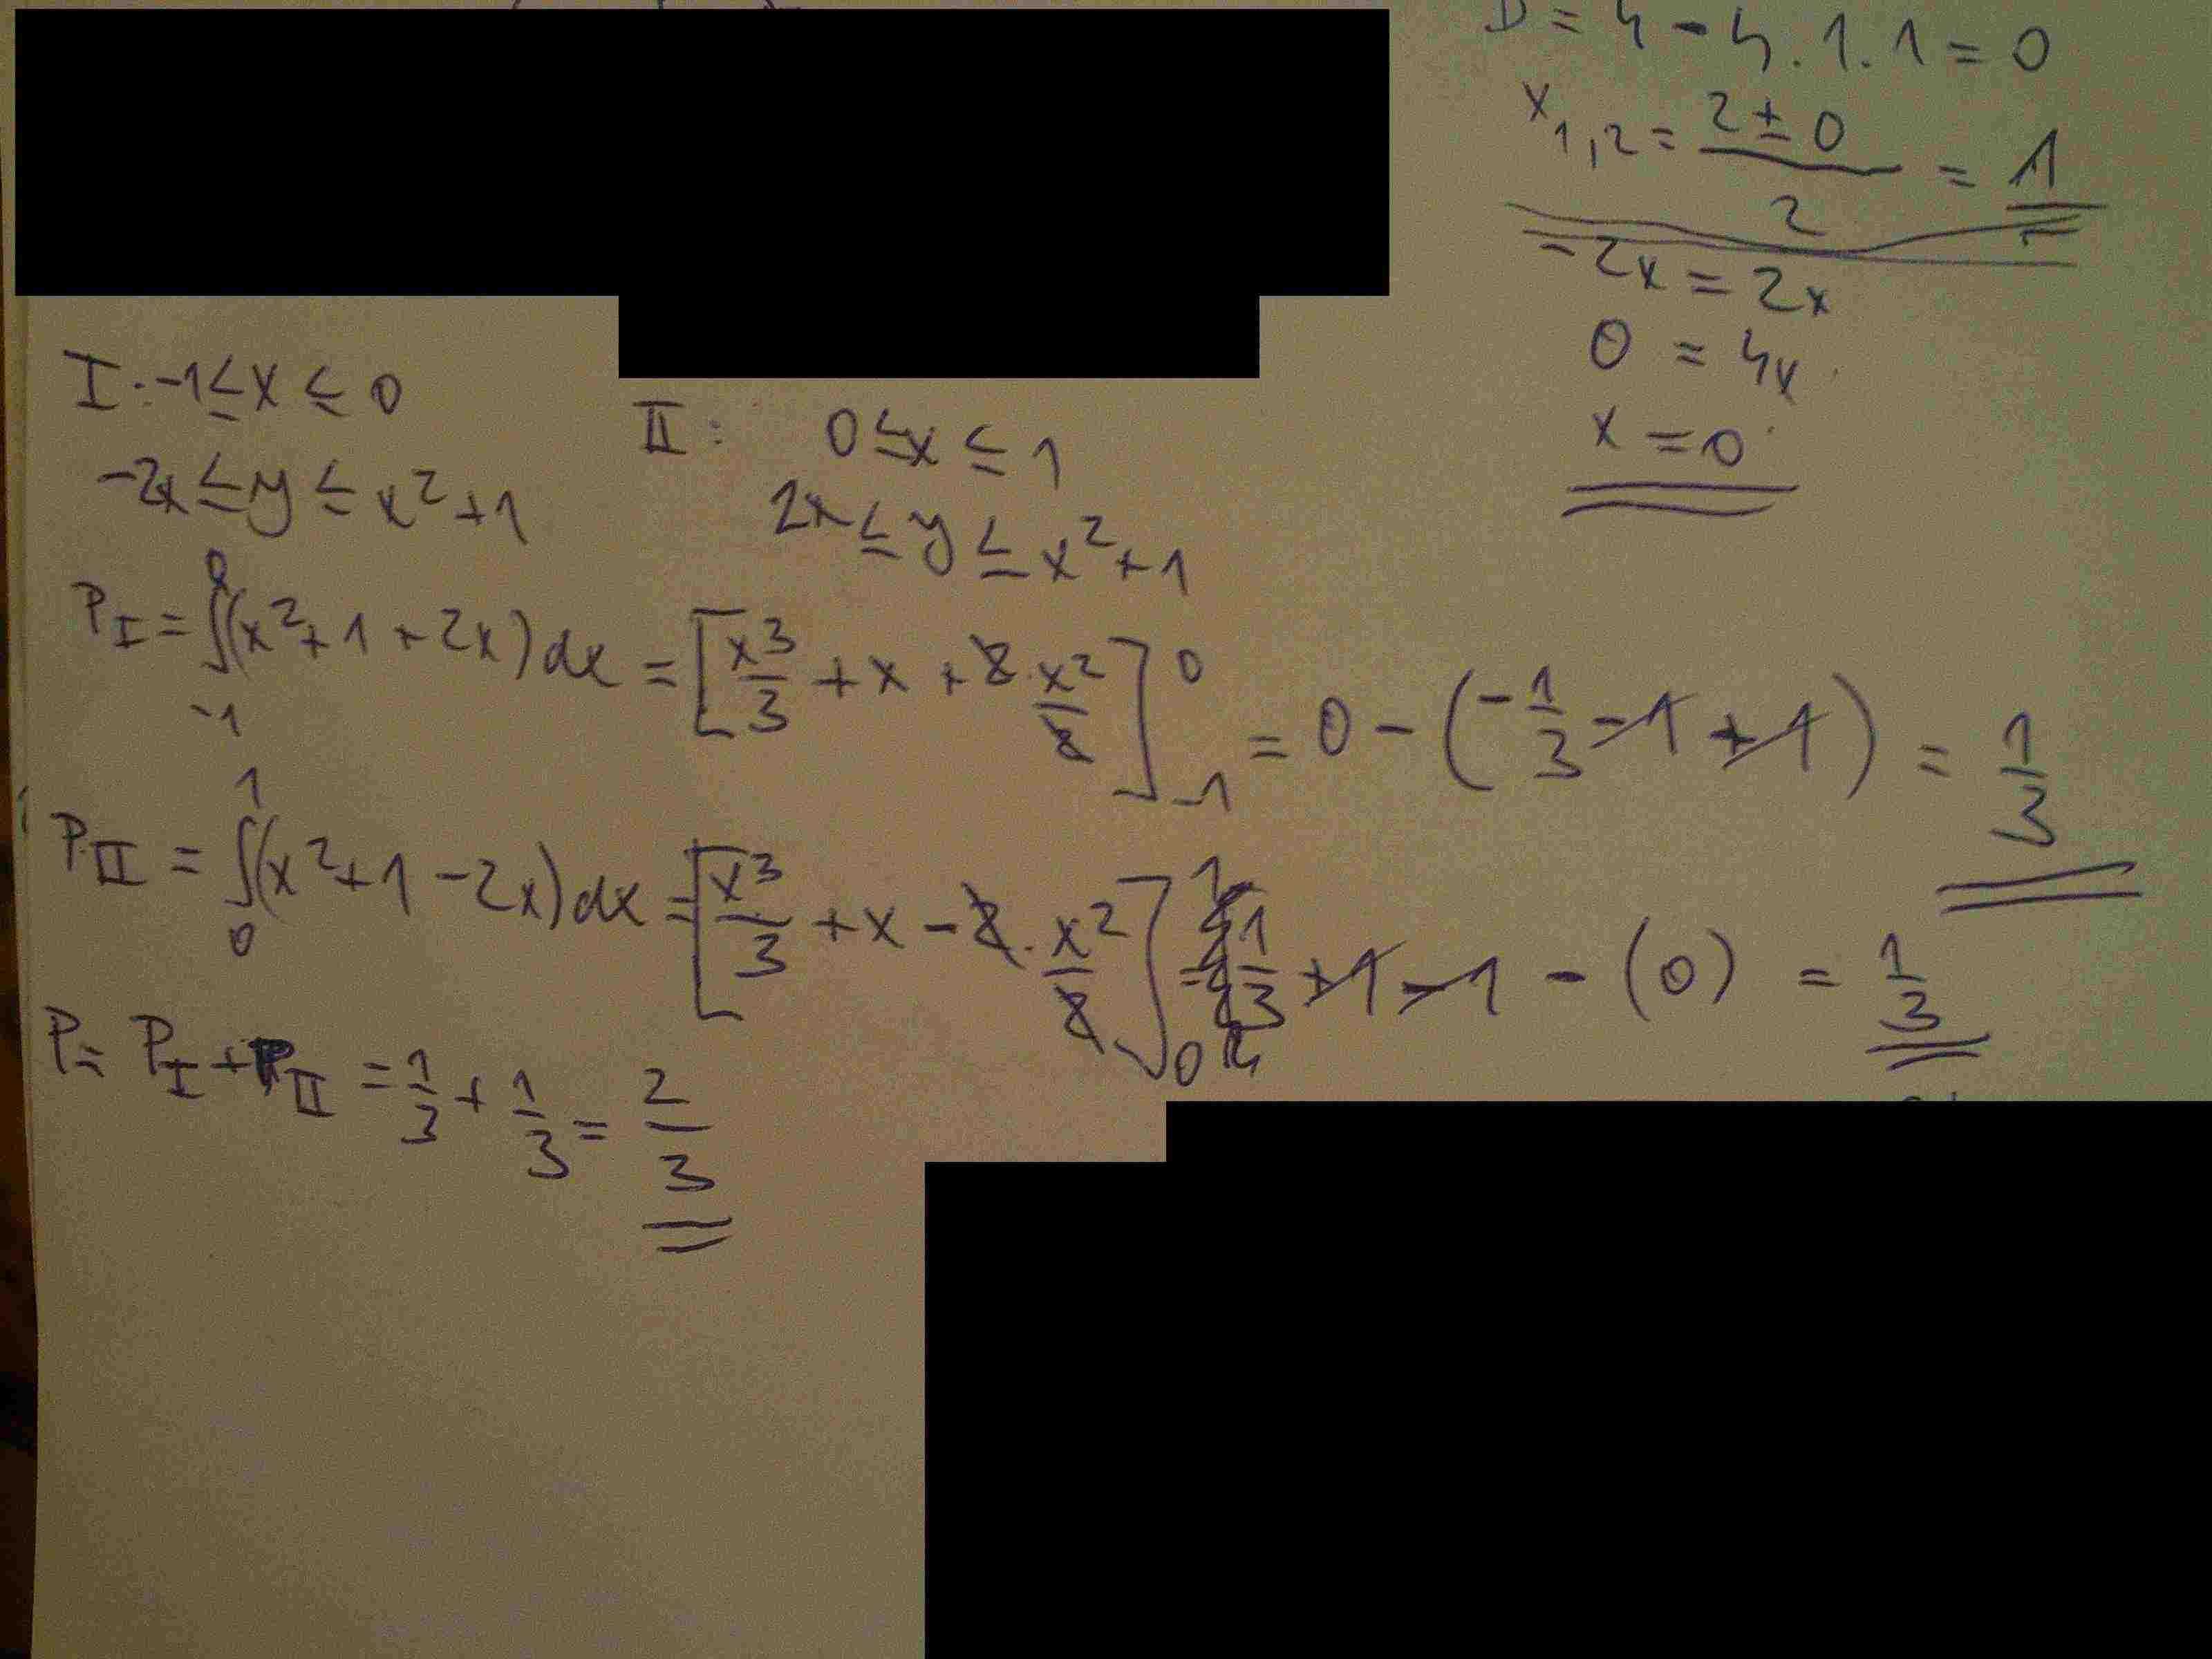 D = 4 - 4.1.1 = 0
x₁,₂ = (2 ± 0)/2 = 1
-2x = 2x
0 = 4x
x = 0
I: -1 ≤ x ≤ 0
-2x ≤ y ≤ x² + 1
II: 0 ≤ x ≤ 1
2x ≤ y ≤ x² + 1
P_I = ∫₋₁⁰ (x² + 1 + 2x) dx = [x³/3 + x + 2·x²/2]₋₁⁰ = 0 - (-1/3 - 1 + 1) = 1/3
P_II = ∫₀¹ (x² + 1 - 2x) dx = [x³/3 + x - 2·x²/2]₀¹ = 1/3 + 1 - 1 - (0) = 1/3
P = P_I + P_II = 1/3 + 1/3 = 2/3